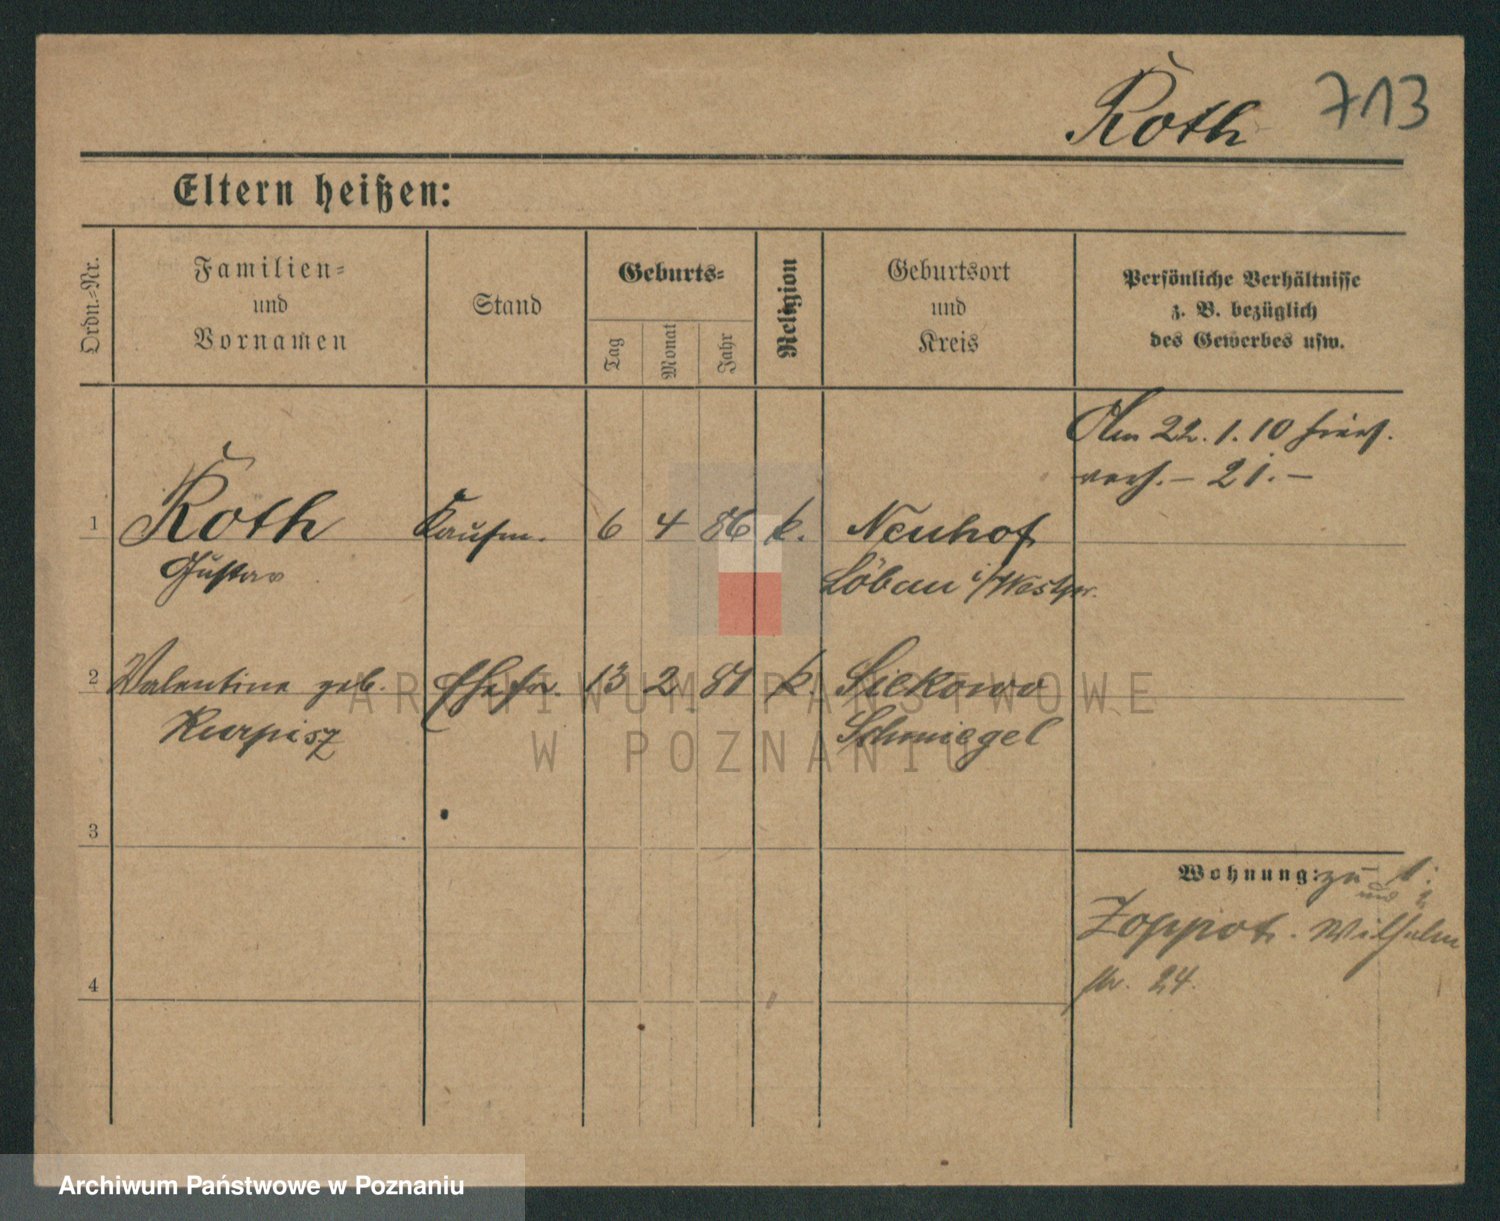 Roth 713
Eltern heißen:
Ordn.-Nr.
Familien-
und
Vornamen
Stand
Geburts-
Tag
Monat
Jahr
Religion
Geburtsort
und
Kreis
Persönliche Verhältnisse
z. B. bezüglich
des Gewerbes usw.
Am 22.1.10 hier
21.-
1 Roth Kaufm. 6 4 86 k. Neuhof
Gustav Löbau i/Westpr.
2 Valentine geb. Ehefr. 13 2 81 k. Siekowo
Kurpisz Schmiegel
3
Wohnung: zu 1.
und 2
Zoppot. Wilhelm
str. 24.
4
ARCHIWUM PAŃSTWOWE
W POZNANIU
Archiwum Państwowe w Poznaniu